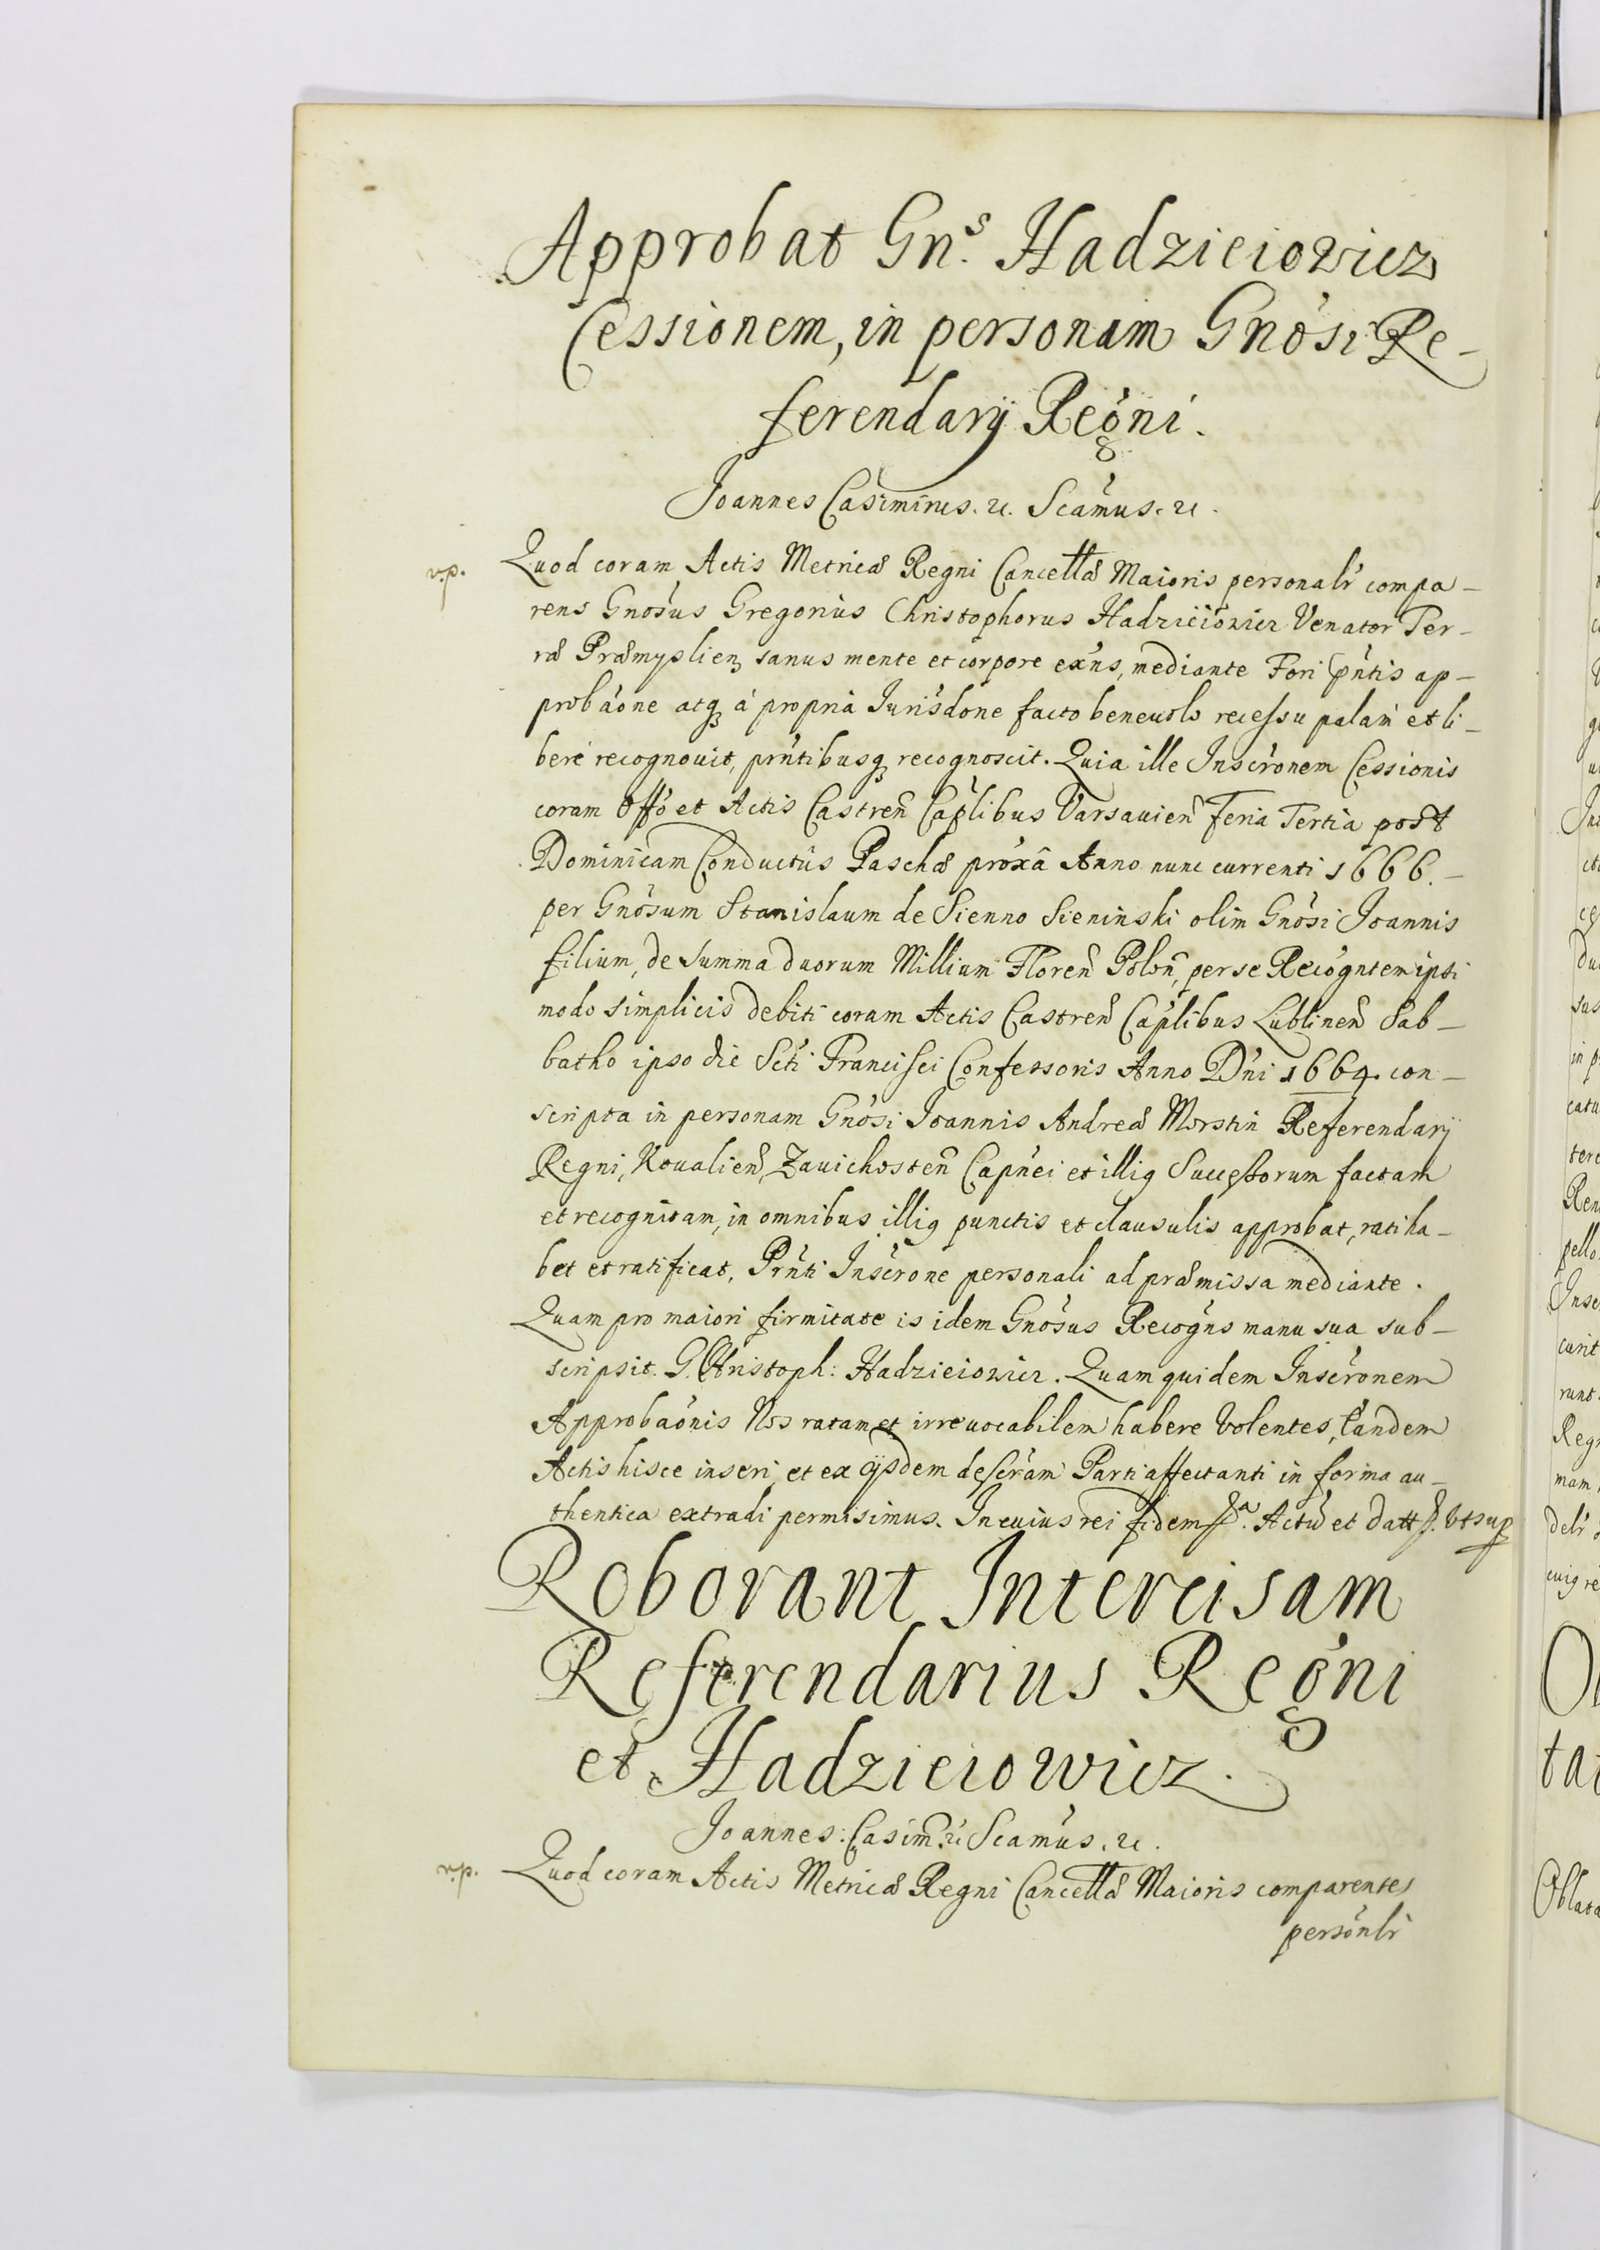 Approbat Gn.s Hadzieiowicz
Cessionem, in personam Gnosi Re-
ferendarij Regni.
Joannes Casimirus. &. Scamus. &.
v.p. Quod coram Actis Metricæ Regni Cancellæ Maioris personalr compa-
rens Gnosus Gregorius Christophorus Hadzieiowicz Venator Ter-
ræ Præmyslien, sanus mente et corpore exns, mediante Fori pntis ap-
probaone atq á propria Jurisdone facto beneuolo recessu palam et li-
bere recognouit, prntibusq recognoscit. Quia ille Inscronem Cessionis
coram Offo et Actis Castren Caplibus Varsauien Feria Tertia post
Dominicam Conductus Paschæ proxa Anno nunc currenti 1666.-
per Gnosum Stanislaum de Sienno Sieninski olim Gnosi Joannis
filium, de Summa duorum Millium Floren Polon, per se Recogntem ipsi
modo simplicis debiti coram Actis Castren Caplibus Lublinen Sab-
batho ipso die Scti Francisci Confessoris Anno Dni 1664. con-
scripta in personam Gnosi Joannis Andreæ Morstin Referendarij
Regni, Koualien, Zauichosten Capnei et illig Successorum factam
et recognitam, in omnibus illig punctis et clausulis approbat, ratiha-
bet et ratificat, Prnti Inscrone personali ad præmissa mediante.
Quam pro maiori firmitate is idem Gnosus Recogns manu sua sub-
scripsit. G. Christoph: Hadzieiowicz. Quam quidem Inscronem
Approbaonis Nos ratam et irreuocabilem habere Volentes, eandem
Actis hisce inseri, et ex ijsdem descram Parti affectanti in forma au-
thentica extradi permisimus. In cuius rei fidem Actu et Datt ut sup
Roborant Intercisam
Referendarius Regni
et Hadzieiowicz.
Joannes: Casim: & Scamus. &.
v.p. Quod coram Actis Metricæ Regni Cancellæ Maioris comparentes
personlr